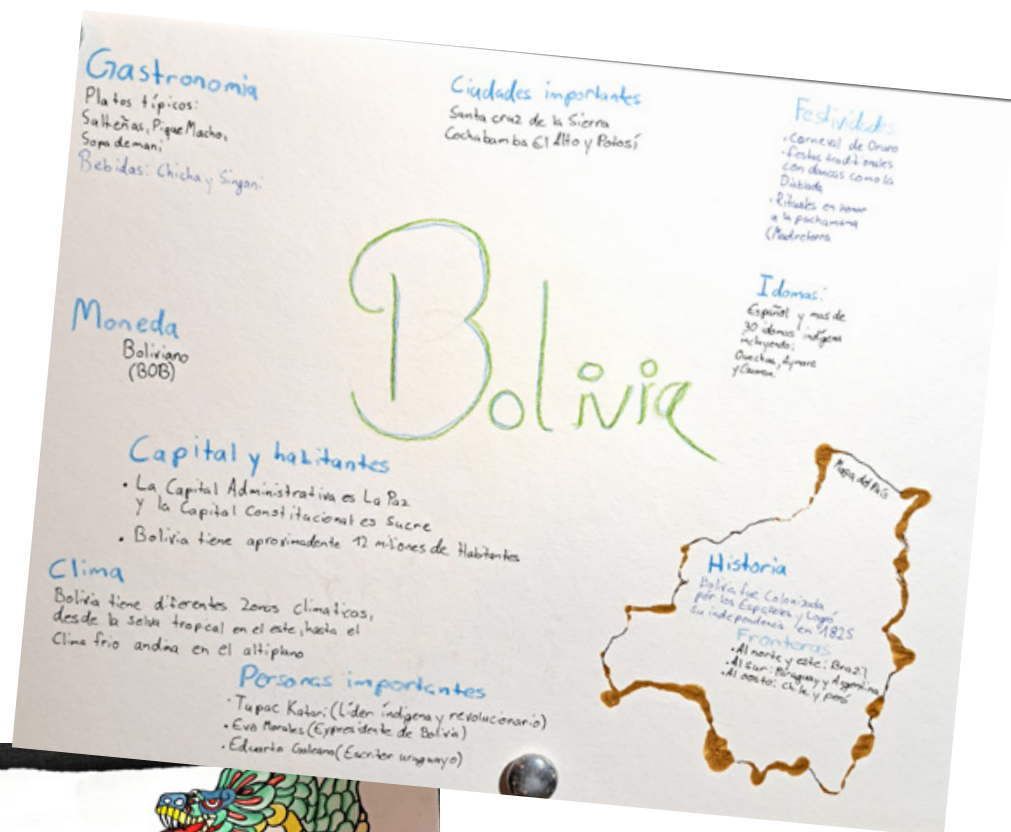 Gastronomia
Platos típicos:
Salteñas, Pique Macho,
Sopa de mani
Bebidas: Chicha y Singani
Ciudades importantes
Santa cruz de la Sierra
Cochabamba El Alto y Potosí
Festividades
• Carneval de Oruro
• Festas traditionales
con dancas como la
Diablada
• Rituales en honor
a la pachamama
(Madretierra
Bolivia
Idomas:
Español y mas de
30 idomas indígena
incluyendo:
Quechua, Aymara
y Guarani
Moneda
Boliviano
(BOB)
Capital y habitantes
• La Capital Administrativa es La Paz
y la Capital Constitucional es Sucre
• Bolivia tiene aproximadente 12 millones de Habitantes
Clima
Bolivia tiene diferentes Zonas climaticas,
desde la selva tropcal en el este, hasta el
Clima frio andina en el altiplano
Personas importantes
• Tupac Katari (Líder indígena y revolucionario)
• Evo Morales (Expresidente de Bolivia)
• Eduardo Galeano (Escritor uruguayo)
Mapa del País
Historia
Bolivia fue Colonizada
por los Españoles y Logró
su independencia en 1825
Frontoras
• Al norte y este: Brazil
• Al sur: Paraguay y Argentina
• Al oesto: Chile y perú